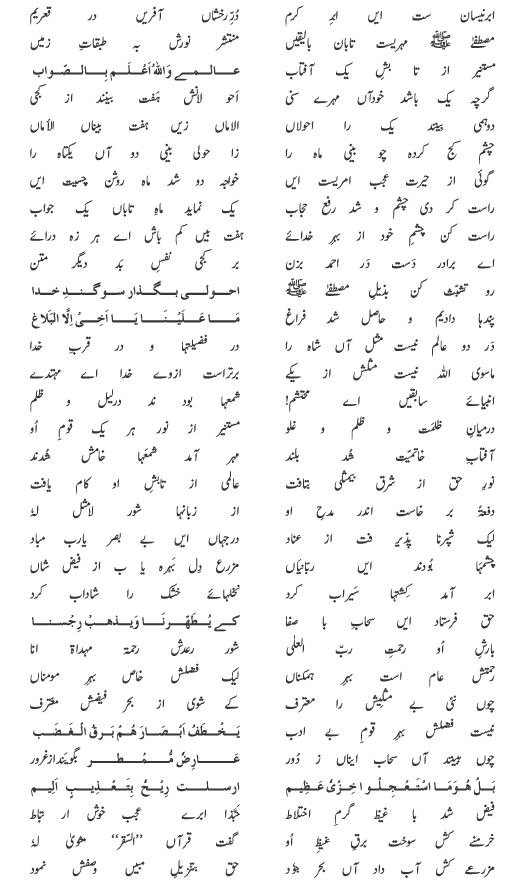 ابر نیساں ست ایں ابر کرم دُرِّ رخشاں آفریں در قعریم
مصطفےٰ ﷺ مہریست تاباں بالیقیں منتشر نورش بہ طبقاتِ زمیں
مستنیر از تابشِ یک آفتاب عالمے واللہُ اَعْلَم بِالصَّواب
گرچہ یک باشد خود آں مہرے سنی احولانش ہفت بینند از کجی
دو ہمی بینند یک را احولاں الاماں زیں ہفت بیناں الاماں
چشم کج کردہ چو بینی ماہ را زا حولی بینی دو آں یکتاہ را
گوئی از حیرت عجب امریست ایں خواجہ دو شد ماہ روشن چیست ایں
راست کر دی چشم و شد رفع حجاب یک نماید ماہِ تاباں یک جواب
راست کن چشمِ خود از بہرِ خدائے ہفت بیں کم باش اے ہر زہ درائے
اے برادر دَست دَر احمد بزن بر کجی نفسِ بد دیگر متن
رو تشبّث کن بذیلِ مصطفےٰ ﷺ احولی بگذار سوگندِ خدا
پندہا دادیم و حاصل شد فراغ مَا عَلَیْنَا یَا اَخِیْ اِلَّا الْبَلَاغ
دَر دو عالم نیست مثل آں شاہ را در فضیلتہا و در قربِ خدا
ماسوی اللہ نیست مثلش از یکے برتراست ازوے خدا اے مہتدے
انبیائے سابقیں اے محتشم! شمعہا بود ند درلیل و ظلم
درمیانِ ظلمت و ظلم و غلو مستنیر از نور ہر یک قومِ اُو
آفتابِ خاتمیّت شد بلند مہر آمد شمعہا خامش شدند
نورِ حق از شرقِ بیمثلی بتافت عالمی از تابشِ او کام یافت
دفعۃً بر خاست اندر مدحِ او از زبانہا شور لامثل لہٗ
لیک شپرنا پذیر فت از عناد درجہاں ایں بے بصر یارب مباد
چشمہا بُودند ایں ربّانیاں مزرعِ دِل بَہرہ یا ب از فیض شاں
ابر آمد کِشتہا سَیراب کرد نخلہائے خشک را شاداب کرد
حق فرستاد ایں سحابِ با صفا کے یُطَھِّرنَا وَیذھبْ رِجْسنا
بارشِ اُو رحمتِ ربّ العلٰی شور رعدش رحمۃ مہداۃ انا
رحمتش عام است بہرِ ہمکناں لیک فضلش خاص بہرِ مومناں
چوں نئی بے مثلیش را معترف کے شوی از بحر فیضش مغترف
نیست فضلش بہرِ قومِ بے ادب یَخْطَفُ اَبْصَارَھُمْ بَرقُ الْغَضَب
چوں ببینند آں سحاب ایناں ز دُور عَارِضٌ مُّمْطِر بگویند از غرور
بَلْ ھُوَ مَا اسْتَعْجَلُوا خِزْیٌ عَظِیم ارسلت رِیْحٌ بِتَعْذِیبٍ اَلِیم
فیض شد با غیظ گرمِ اختلاط حَبَّذا ابرے عجب خوش ار تباط
خرمنے کش سوخت برقِ غیظِ اُو گفت قرآں ”السّقر“ مثویٰ لہٗ
مزرعے کش آب داد آں بحرِ جُود حق بتنزیلِ مبیں وصفش نمود